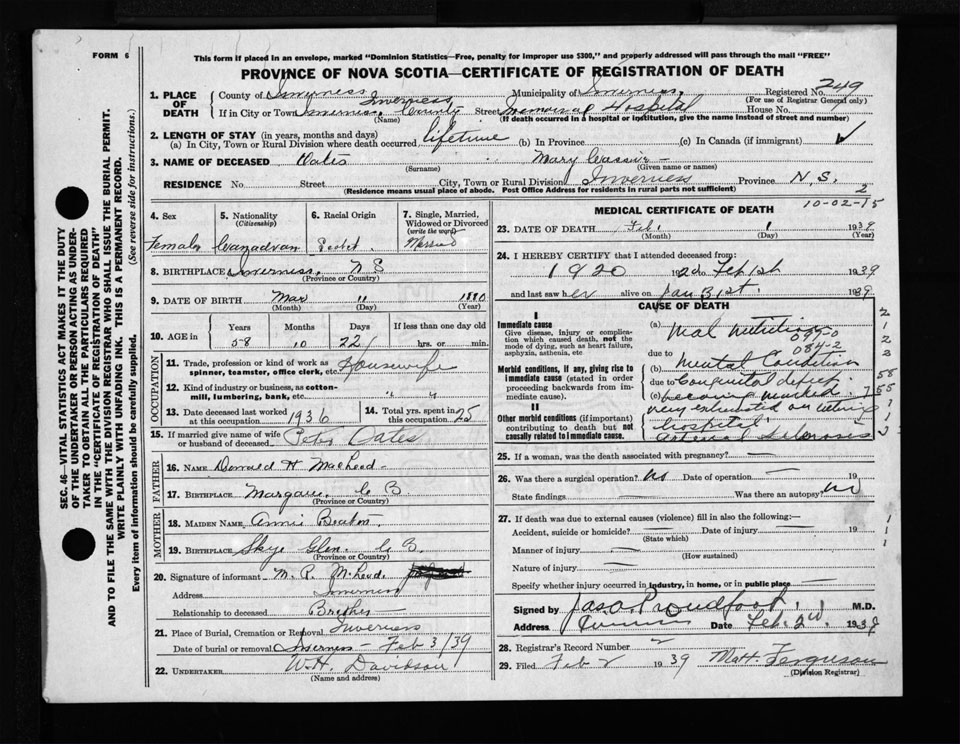 FORM 6
This form if placed in an envelope, marked "Dominion Statistics—Free, penalty for improper use $300," and properly addressed will pass through the mail "FREE"
PROVINCE OF NOVA SCOTIA—CERTIFICATE OF REGISTRATION OF DEATH
SEC. 46—VITAL STATISTICS ACT MAKES IT THE DUTY
OF THE UNDERTAKER OR PERSON ACTING AS UNDER-
TAKER TO OBTAIN ALL THE PARTICULARS REQUIRED
IN THE "CERTIFICATE OF REGISTRATION OF DEATH"
AND TO FILE THE SAME WITH THE DIVISION REGISTRAR WHO SHALL ISSUE THE BURIAL PERMIT.
WRITE PLAINLY WITH UNFADING INK. THIS IS A PERMANENT RECORD.
Every item of information should be carefully supplied. (See reverse side for instructions.)
1. PLACE OF DEATH County of Inverness Municipality of Inverness Registered No. 249
(For use of Registrar General only)
If in City or Town Inverness Inverness County Street Memorial Hospital House No.
(Name) (If death occurred in a hospital or institution, give the name instead of street and number)
2. LENGTH OF STAY (in years, months and days)
(a) In City, Town or Rural Division where death occurred lifetime (b) In Province (c) In Canada (if immigrant) ✓
3. NAME OF DECEASED Oates Mary Cassie
(Surname) (Given name or names)
RESIDENCE No. Street City, Town or Rural Division Inverness Province N.S.
(Residence means usual place of abode. Post Office Address for residents in rural parts not sufficient) 2
10-02-15
4. Sex Female
5. Nationality (Citizenship) Canadian
6. Racial Origin Scotch
7. Single, Married, Widowed or Divorced (write the word) Married
8. BIRTHPLACE Inverness, N S
(Province or Country)
9. DATE OF BIRTH Mar 11 1880
(Month) (Day) (Year)
10. AGE in Years Months Days If less than one day old
58 10 22 hrs. or min.
OCCUPATION
11. Trade, profession or kind of work as spinner, teamster, office clerk, etc. Housewife
12. Kind of industry or business, as cotton-mill, lumbering, bank, etc. " "
13. Date deceased last worked at this occupation 1936
14. Total yrs. spent in this occupation 25
15. If married give name of wife or husband of deceased Peter Oates
FATHER
16. NAME Donald H MacLeod
17. BIRTHPLACE Margaree C B
(Province or Country)
MOTHER
18. MAIDEN NAME Annie Beaton
19. BIRTHPLACE Skye Glen C B.
(Province or Country)
20. Signature of informant M. P. McLeod
Address Inverness
Relationship to deceased Brother
21. Place of Burial, Cremation or Removal Inverness
Date of burial or removal Inverness - Feb 3/39
22. UNDERTAKER W.H. Davidson
(Name and address)
MEDICAL CERTIFICATE OF DEATH
23. DATE OF DEATH Feb. 1 1939
(Month) (Day) (Year)
24. I HEREBY CERTIFY that I attended deceased from:
1920 to Feb 1st 1939
and last saw her alive on Jan 31st. 1939
CAUSE OF DEATH
I
Immediate cause
Give disease, injury or complication which caused death, not the mode of dying, such as heart failure, asphyxia, asthenia, etc
(a) Mal nutrition
097-0
084-2
due to
Morbid conditions, if any, giving rise to immediate cause (stated in order proceeding backwards from immediate cause).
(b) Mental Condition
due to Congenital defect.
(c) becoming marked.
very exhausted on entering
II
Other morbid conditions (if important) contributing to death but not causally related to immediate cause.
hospital
Arterial Sclerosis
25. If a woman, was the death associated with pregnancy? —
26. Was there a surgical operation? No Date of operation — 19
State findings — Was there an autopsy? No
27. If death was due to external causes (violence) fill in also the following:—
Accident, suicide or homicide? — Date of injury — 19
(State which)
Manner of injury —
(How sustained)
Nature of injury —
Specify whether injury occurred in industry, in home, or in public place —
Signed by Jas. A. Proudfoot. M.D.
Address Inverness Date Feb. 2nd 1939
28. Registrar's Record Number 2
29. Filed Feb 2 1939 Matt Ferguson
(Division Registrar)